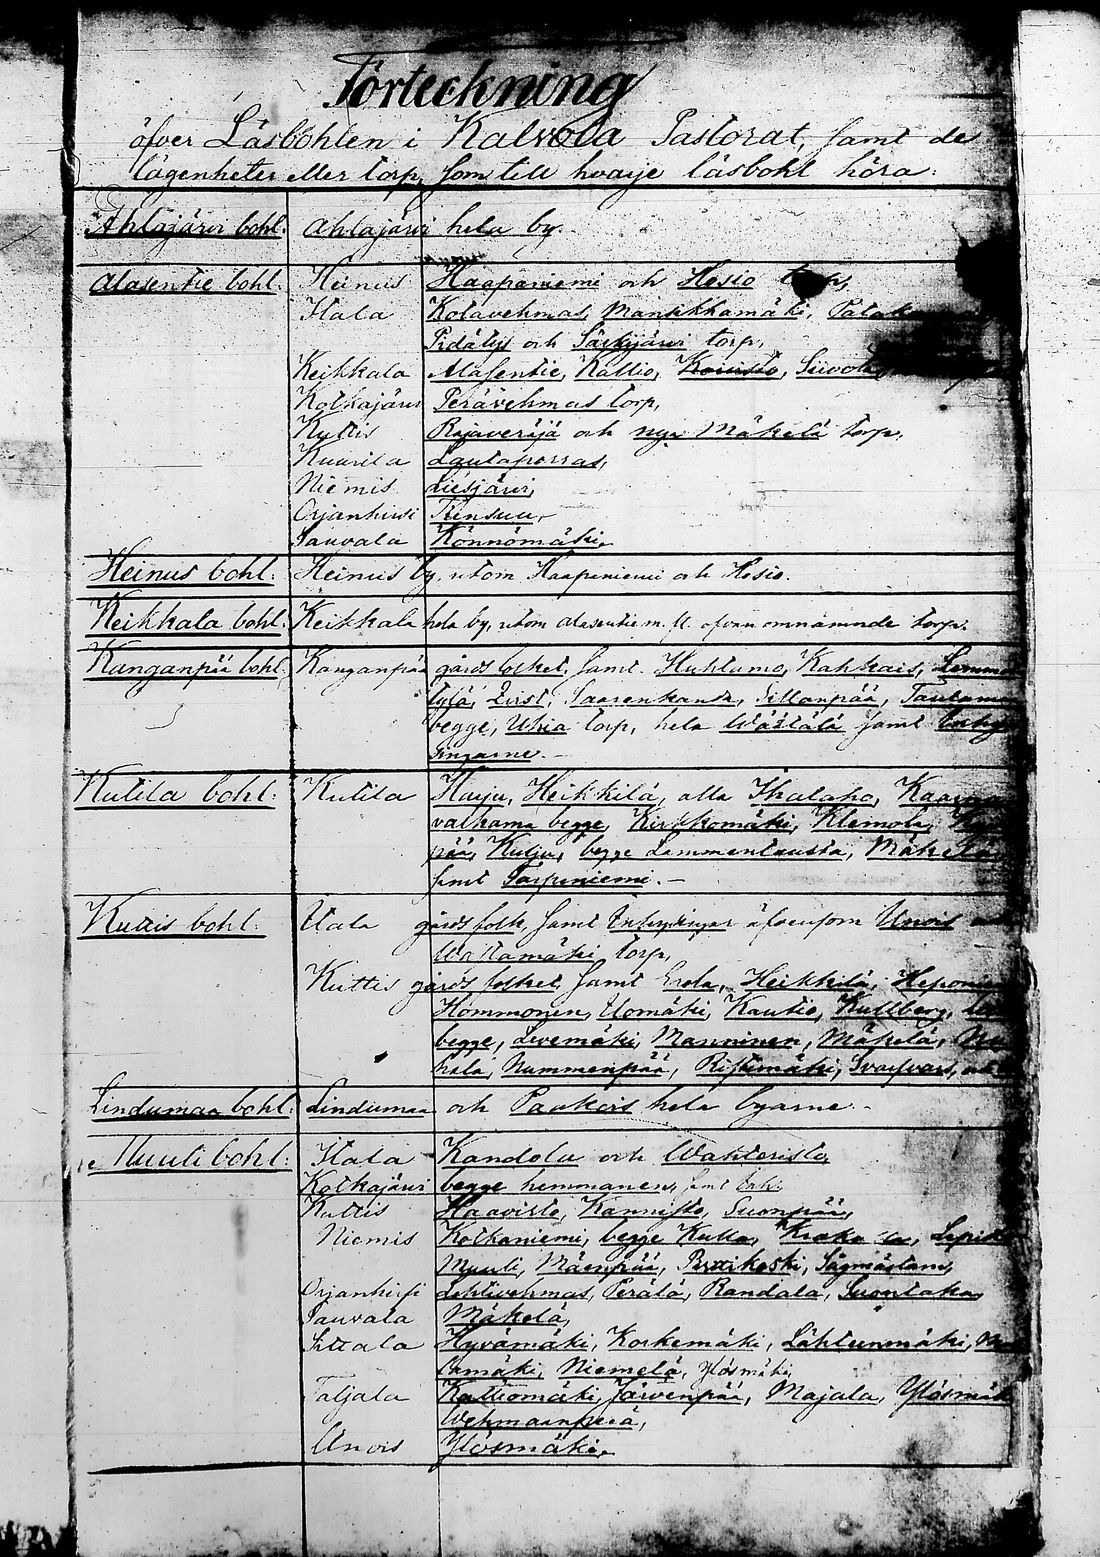 Förteckning
öfver Läsbohlen i Kalvola Pastorat, samt de
lägenheter eller torp, som till hvarje läsbohl höra:
Ahlajärvi bohl. Ahlajärvi hela by.
Alasentie bohl. Heinus Haapaniemi och Hesio
Itala Kotavehmas, Mansikkamäki,
Pidätys och Särkijärvi torp,
Keikkala Alasentie, Kallio, Koivisto,
Kotkajärvi Perävehmas torp,
Kuttis Rajaveräjä och nya Mäkelä torp,
Kuurila Lautaporras,
Niemis Liesjärvi,
Orjanhirsi Rensuu,
Sauvala Könnömäki.
Heinus bohl. Heinus by, utom Haapaniemi och Hesio.
Keikkala bohl. Keikkala hela by, utom Alasentie m. fl. ofvan omnämnde torp.
Kanganpää bohl. Kanganpää gårds folket, samt Huhtamo, Kahkais,
Eirst, Saarenkanta, Sillanpää,
begge, Uhia torp, hela Wästälä samt

Kutila bohl. Kutila Harju, Heikkilä, alla Ihalaho,
valkama begge, Kirkkomäki, Klemola,
pää, Kulju, begge Lammentausta, Mäkelä
samt Sarpiniemi.
Kuttis bohl. Itala gårds folk, samt äfvensom Unois
Wartamäki torp,
Kuttis gårds folket, samt Erola, Heikkilä,
Hommonen, Ilomäki, Kautio, Kullberg,
begge, Levemäki, Manninen, Mäkelä,
hala, Nummenpää, Ristimäki, Svarfvars,
Lindumaa bohl. Lindumaa och Paukois hela byarne.
Muuli bohl. Itala Kandola och Wahteristo,
Kotkajärvi begge hemmanen, samt
Kuttis Haavisto, Kannisto, Suonpää,
Niemis Kotkaniemi, begge Kulla,
Muuli, Mäenpää, Perttikoski, Sågmästars,
Orjanhirsi Lehtivehmas, Perälä, Randala, Suontaka,
Sauvala Mäkelä,
Sittala Hyvämäki, Korkemäki, Lähteenmäki,
Niemelä, Ylösmäki,
Taljala Kalliomäki, Järvenpää, Majala,
Wehmaanperä,
Unois Ylösmäki.